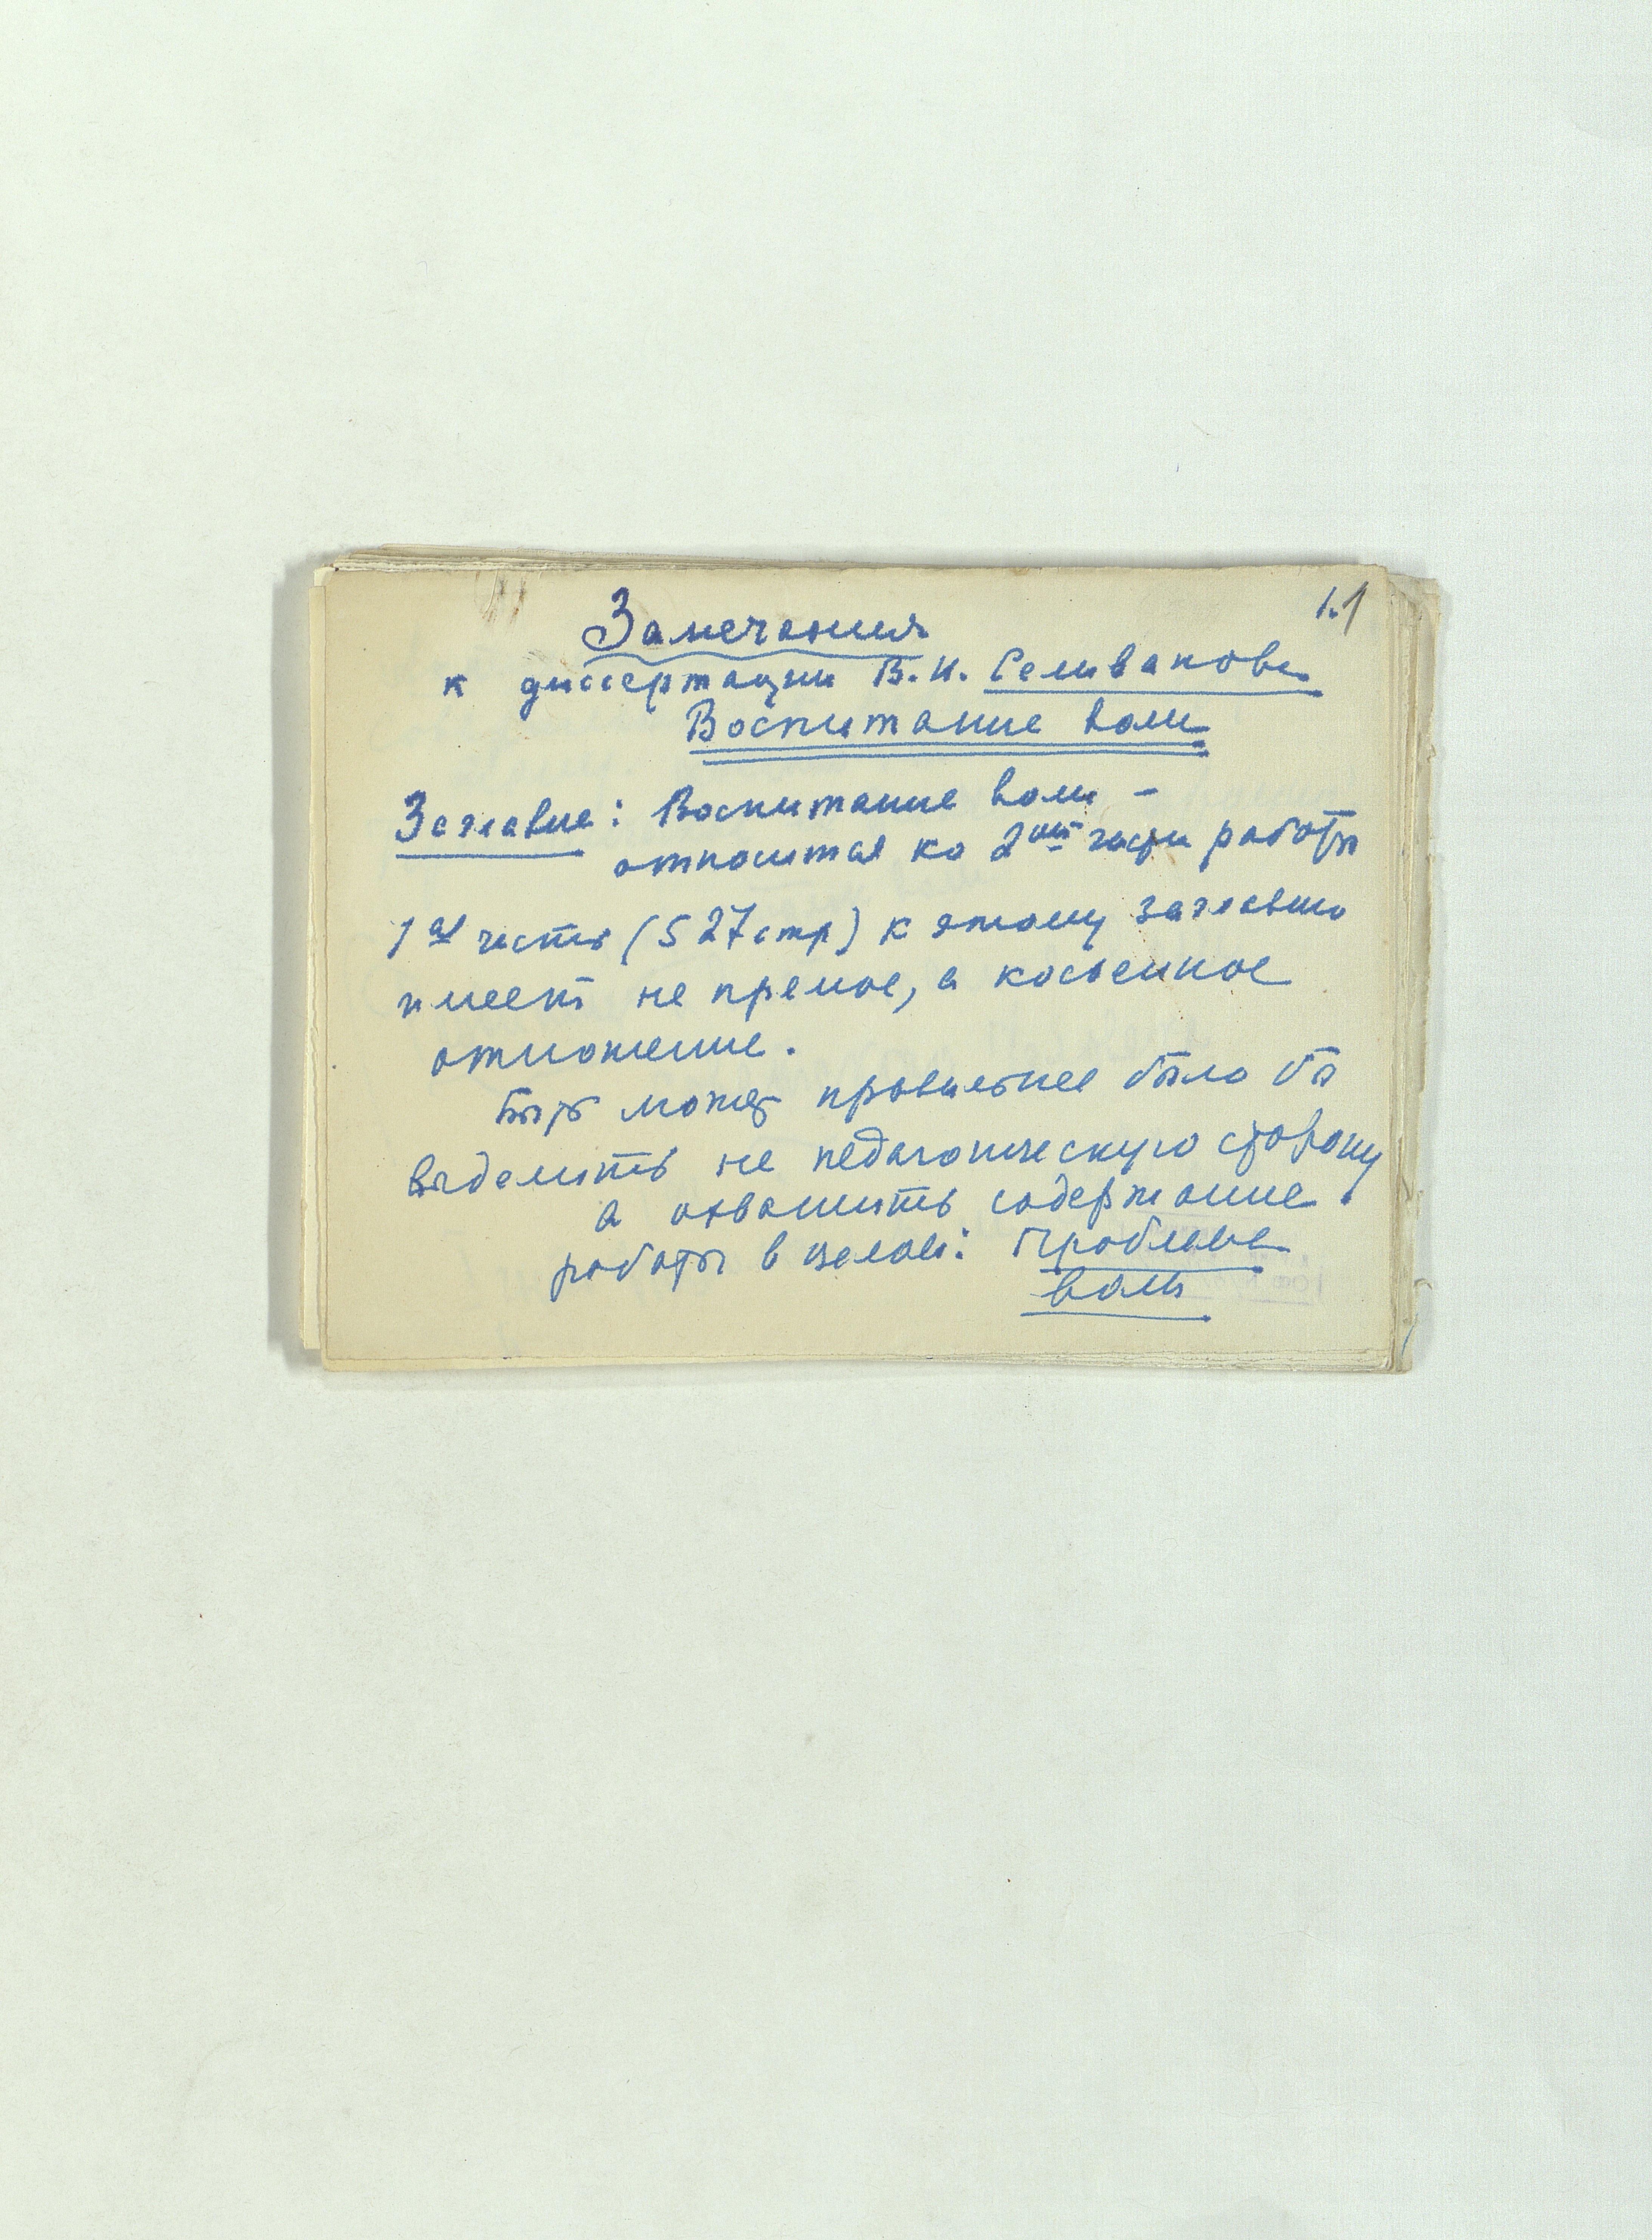 1.1
Замечания
к диссертации В.И. Селиванова
Воспитание воли
Заглавие: Воспитание воли –
относится ко 2ой части работы
1ая часть (527 стр) к этому заглавию
имеет не прямое, а косвенное
отношение.
Быть может правильнее было бы
выделить не педагогическую сторону
а охватить содержание
работы в целом: Проблема
воли